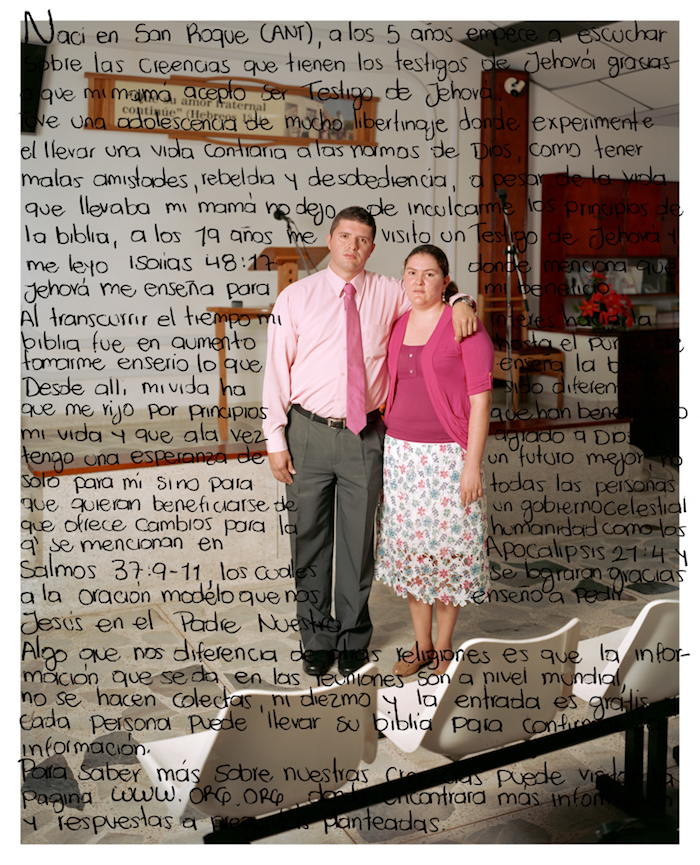 Nací en San Roque (ANT), a los 5 años empecé a escuchar
sobre las creencias que tienen los testigos de Jehová gracias
a que mi mamá acepto ser Testigo de Jehová.
amor fraternal
continúe” (Hebreos
Tuve una adolescencia de mucho libertinaje donde experimente
el llevar una vida contraria a las normas de Dios, como tener
malas amistades, rebeldia y desobediencia, a pesar de la vida
que llevaba mi mamá no dejo de inculcarme los principios de
la biblia, a los 19 años me visito un Testigo de Jehova y
me leyo Isaías 48:17 donde menciona que
Jehová me enseña para mi beneficio
Al transcurrir el tiempo mi interés hacia la
biblia fue en aumento hasta el punto de
tomarme enserio lo que enseña la
Desde allí, mi vida ha sido diferente
que me rijo por principios que han
mi vida y que a la vez agrado a Dios
tengo una esperanza de un futuro mejor, no
solo para mí sino para todas las personas
que quieran beneficiarse de un gobierno celestial
que ofrece cambios para la humanidad como los
q' se mencionan en Apocalipsis 21:4 y
Salmos 37:9-11, los cuales se lograran gracias
a la oración modelo que nos enseño a pedir
Jesús en el Padre Nuestro
Algo que nos diferencia de otras religiones es que la infor-
mación que se da en las reuniones son a nivel mundial,
no se hacen colectas, ni diezmo y la entrada es gratis,
cada persona puede llevar su biblia para
información.
Para saber más sobre nuestras creencias puede
pagina www.ORG.ORG, donde encontrara mas
y respuestas a preguntas planteadas.